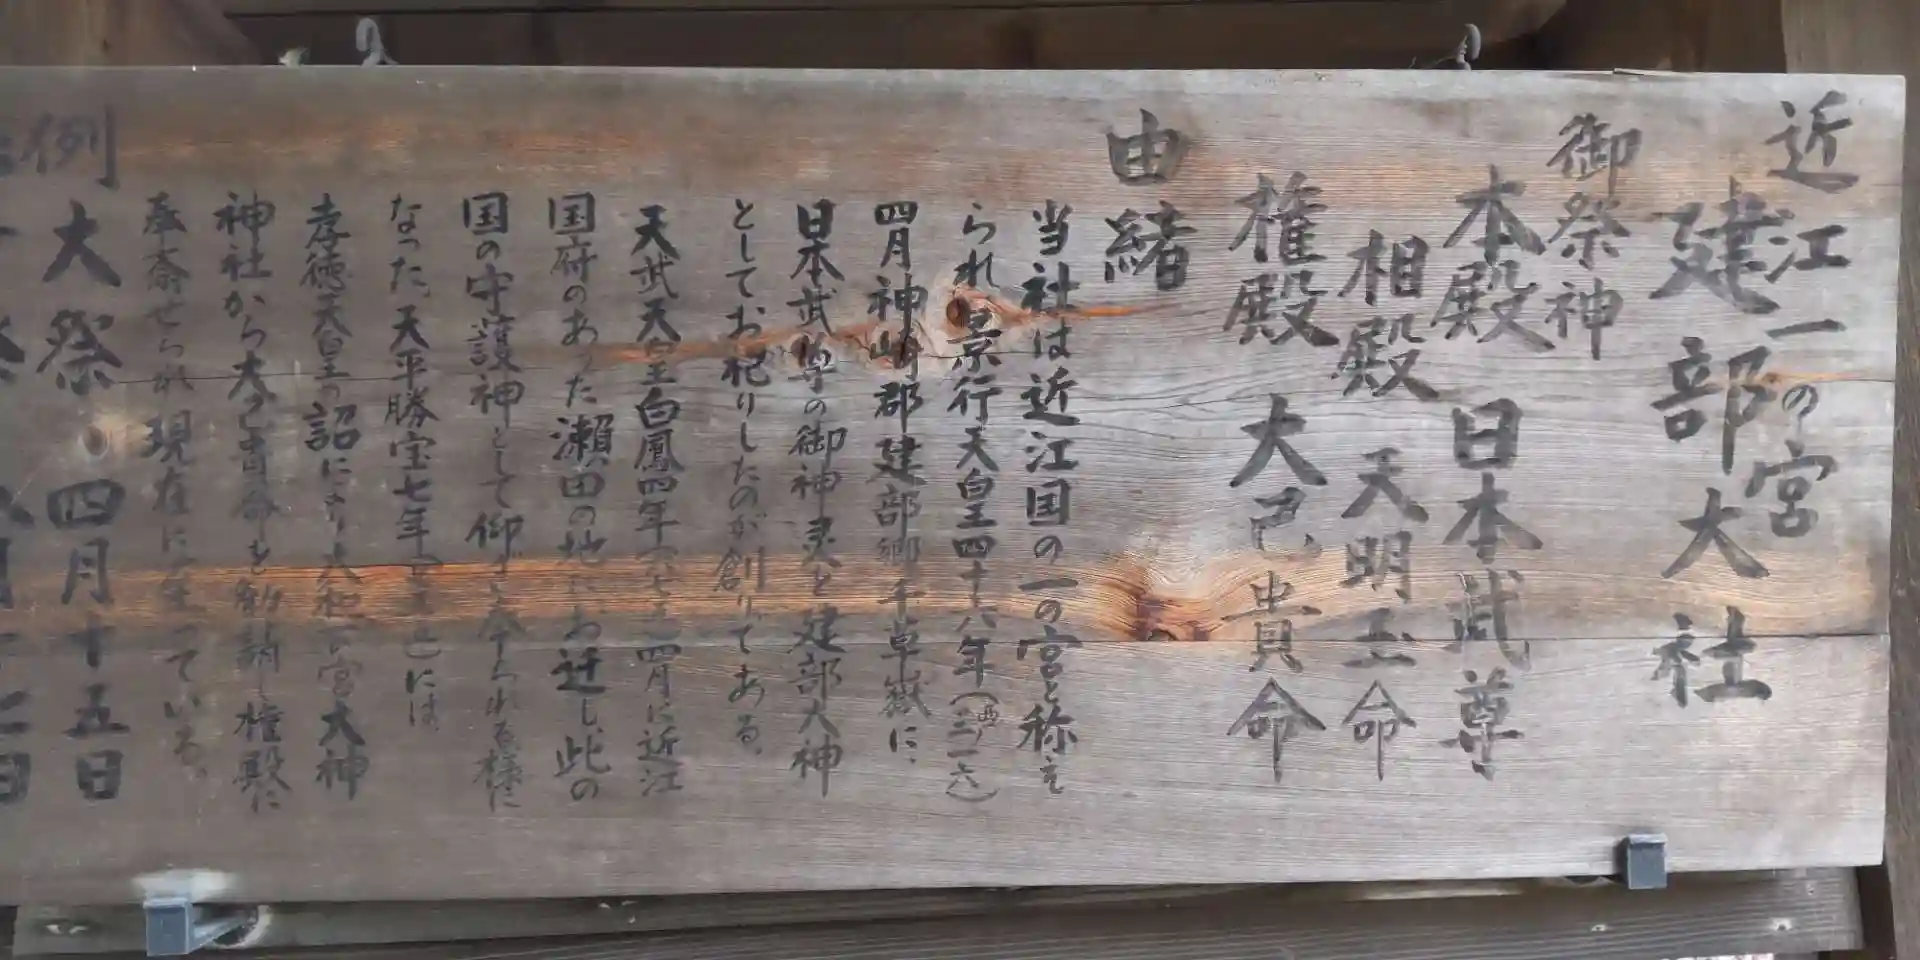 近江一の宮
建部大社
御祭神
本殿 日本武尊
相殿 天明玉命
権殿 大己貴命
由緒
当社は近江国の一の宮と称え
られ景行天皇四十六年(西、三一六)
四月神崎郡建部郷千草嶽に、
日本武尊の御神霊を建部大神
としてお祀りしたのが創りてある。
天武天皇白鳳四年(六七五)四月に近江
国府のあった瀬田の地にお迁し此の
国の守護神として仰ぎ奉られる様に
なった。天平勝宝七年()には、
孝徳天皇の詔により大和一の宮大神
神社から大己貴命を勧請し権殿に
奉斎せられ現在に至っている。
例大祭 四月十五日